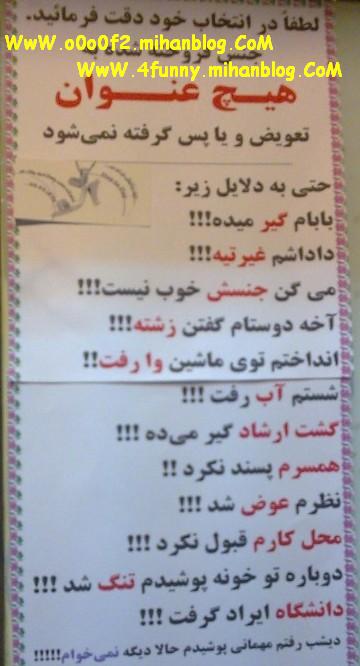 لطفاً در انتخاب خود دقت فرمائید.
Www.o0o0f2.mihanblog.CoM
جنس فروخته شده به
Www.4funny.mihanblog.CoM
هیـچ عنـــوان
تعویض و یا پس گرفته نمی‌شود
حتی به دلایل زیر:
بابام گیر میده!!!
داداشم غیرتیه!!!
می گن جنسش خوب نیست!!!
آخه دوستام گفتن زشته!!!
انداختم توی ماشین وا رفت!!
شستم آب رفت !!!
گشت ارشاد گیر می‌ده !!!
همسرم پسند نکرد !!
نظرم عوض شد !!!
محل کارم قبول نکرد !!!
دوباره تو خونه پوشیدم تنگ شد !!!
دانشگاه ایراد گرفت !!!
دیشب رفتم مهمانی پوشیدم حالا دیگه نمی‌خوام!!!!!!